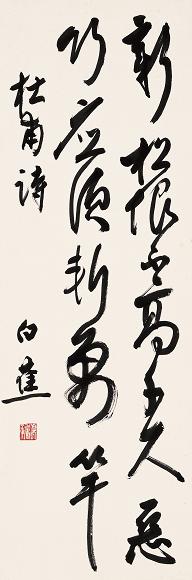 新松恨不高千尺惡
竹應須斬萬竿
杜甫詩
白蕉